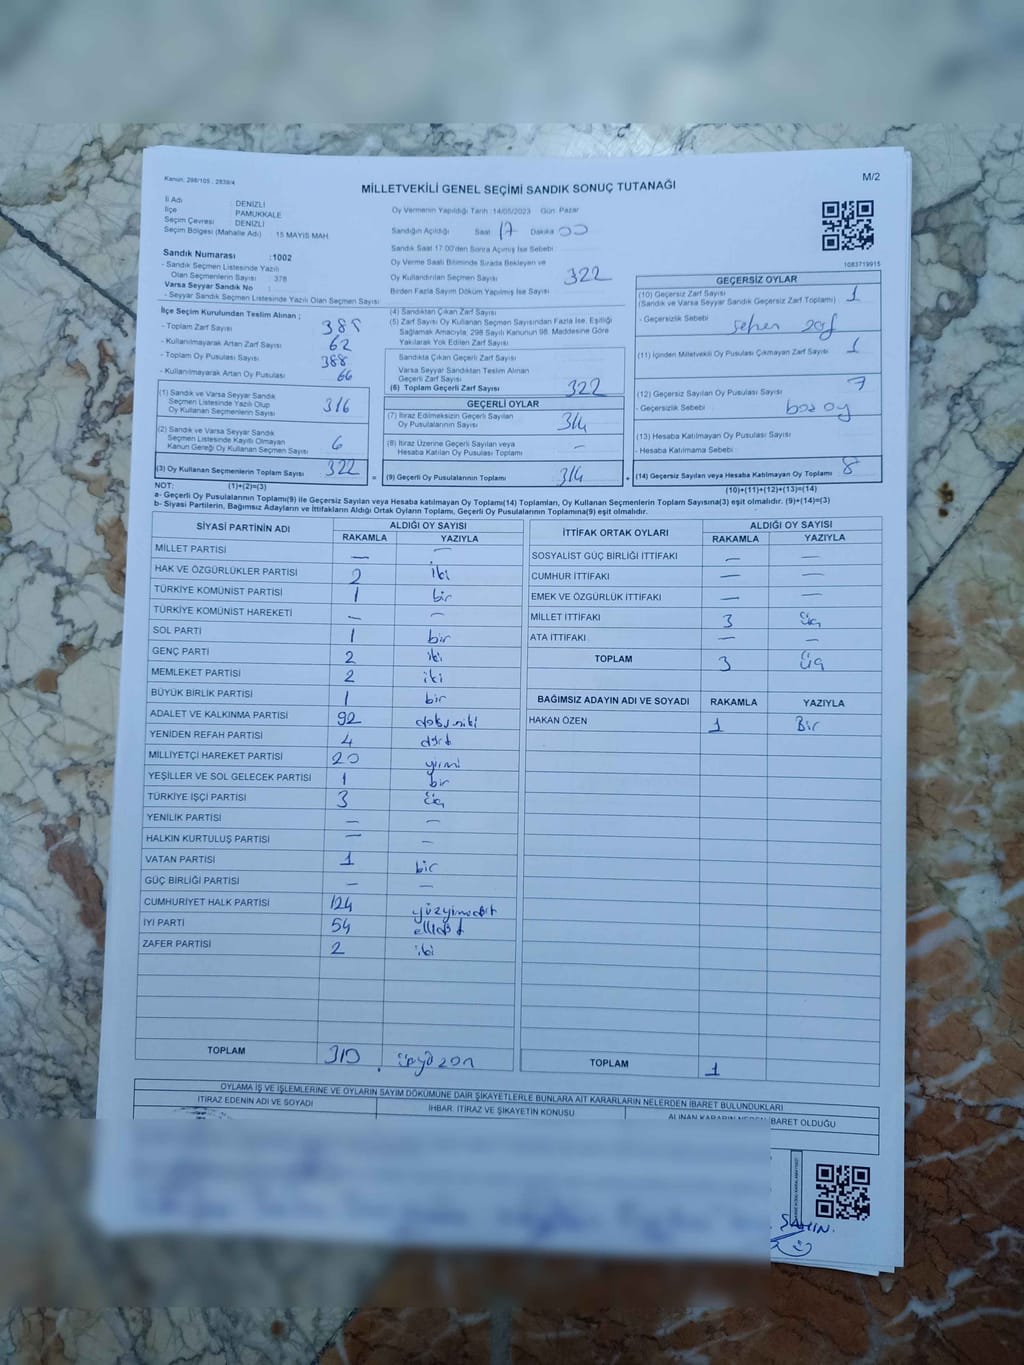 Kanun: 298/105 , 2839/4
MİLLETVEKİLİ GENEL SEÇİMİ SANDIK SONUÇ TUTANAĞI
M/2
İl Adı : DENİZLİ
İlçe : PAMUKKALE
Seçim Çevresi : DENİZLİ
Seçim Bölgesi (Mahalle Adı) : 15 MAYIS MAH.
Oy Vermenin Yapıldığı Tarih :14/05/2023 Gün :Pazar
Sandığın Açıldığı Saat 17 Dakika 00
Sandık Saat 17:00'den Sonra Açılmış İse Sebebi
Oy Verme Saati Bitiminde Sırada Bekleyen ve
Oy Kullandırılan Seçmen Sayısı 322
Birden Fazla Sayım Döküm Yapılmış İse Sayısı
1083719915
Sandık Numarası :1002
- Sandık Seçmen Listesinde Yazılı
Olan Seçmenlerin Sayısı : 378
Varsa Seyyar Sandık No :
- Seyyar Sandık Seçmen Listesinde Yazılı Olan Seçmen Sayısı :
İlçe Seçim Kurulundan Teslim Alınan ;
- Toplam Zarf Sayısı
- Kullanılmayarak Artan Zarf Sayısı 62
- Toplam Oy Pusulası Sayısı 388
- Kullanılmayarak Artan Oy Pusulası 66
(1) Sandık ve Varsa Seyyar Sandık
Seçmen Listesinde Yazılı Olup
Oy Kullanan Seçmenlerin Sayısı 316
(2) Sandık ve Varsa Seyyar Sandık
Seçmen Listesinde Kayıtlı Olmayan
Kanun Gereği Oy Kullanan Seçmen Sayısı 6
(3) Oy Kullanan Seçmenlerin Toplam Sayısı 322
(4) Sandıktan Çıkan Zarf Sayısı
(5) Zarf Sayısı Oy Kullanan Seçmen Sayısından Fazla İse, Eşitliği
Sağlamak Amacıyla, 298 Sayılı Kanunun 98. Maddesine Göre
Yakılarak Yok Edilen Zarf Sayısı
Sandıkta Çıkan Geçerli Zarf Sayısı
Varsa Seyyar Sandıktan Teslim Alınan
Geçerli Zarf Sayısı
(6) Toplam Geçerli Zarf Sayısı 322
GEÇERLİ OYLAR
(7) İtiraz Edilmeksizin Geçerli Sayılan
Oy Pusulalarının Sayısı 314
(8) İtiraz Üzerine Geçerli Sayılan veya
Hesaba Katılan Oy Pusulası Toplamı –
= (9) Geçerli Oy Pusulalarının Toplamı 314
GEÇERSİZ OYLAR
(10) Geçersiz Zarf Sayısı
(Sandık ve Varsa Seyyar Sandık Geçersiz Zarf Toplamı) 1
- Geçersizlik Sebebi
(11) İçinden Milletvekili Oy Pusulası Çıkmayan Zarf Sayısı 1
(12) Geçersiz Sayılan Oy Pusulası Sayısı 7
- Geçersizlik Sebebi boş oy
(13) Hesaba Katılmayan Oy Pusulası Sayısı
- Hesaba Katılmama Sebebi
+ (14) Geçersiz Sayılan veya Hesaba Katılmayan Oy Toplamı 8
NOT: (1)+(2)=(3)
(10)+(11)+(12)+(13)=(14)
a- Geçerli Oy Pusulalarının Toplamı(9) ile Geçersiz Sayılan veya Hesaba katılmayan Oy Toplamı(14) Toplamları, Oy Kullanan Seçmenlerin Toplam Sayısına(3) eşit olmalıdır. (9)+(14)=(3)
b- Siyasi Partilerin, Bağımsız Adayların ve İttifakların Aldığı Ortak Oyların Toplamı, Geçerli Oy Pusulalarının Toplamına(9) eşit olmalıdır.
SİYASİ PARTİNİN ADI ALDIĞI OY SAYISI
RAKAMLA YAZIYLA
MİLLET PARTİSİ — —
HAK VE ÖZGÜRLÜKLER PARTİSİ 2 iki
TÜRKİYE KOMÜNİST PARTİSİ 1 bir
TÜRKİYE KOMÜNİST HAREKETİ — —
SOL PARTİ 1 bir
GENÇ PARTİ 2 iki
MEMLEKET PARTİSİ 2 iki
BÜYÜK BİRLİK PARTİSİ 1 bir
ADALET VE KALKINMA PARTİSİ 92
YENİDEN REFAH PARTİSİ 4 dört
MİLLİYETÇİ HAREKET PARTİSİ 20
YEŞİLLER VE SOL GELECEK PARTİSİ 1 bir
TÜRKİYE İŞÇİ PARTİSİ 3 üç
YENİLİK PARTİSİ — —
HALKIN KURTULUŞ PARTİSİ — —
VATAN PARTİSİ 1 bir
GÜÇ BİRLİĞİ PARTİSİ — —
CUMHURİYET HALK PARTİSİ 124
İYİ PARTİ 54
ZAFER PARTİSİ 2 iki
TOPLAM 310 üçyüzon
İTTİFAK ORTAK OYLARI ALDIĞI OY SAYISI
RAKAMLA YAZIYLA
SOSYALİST GÜÇ BİRLİĞİ İTTİFAKI — —
CUMHUR İTTİFAKI — —
EMEK VE ÖZGÜRLÜK İTTİFAKI — —
MİLLET İTTİFAKI 3 üç
ATA İTTİFAKI — —
TOPLAM 3 üç
BAĞIMSIZ ADAYIN ADI VE SOYADI RAKAMLA YAZIYLA
HAKAN ÖZEN 1 Bir
TOPLAM 1
OYLAMA İŞ VE İŞLEMLERİNE VE OYLARIN SAYIM DÖKÜMÜNE DAİR ŞİKAYETLERLE BUNLARA AİT KARARLARIN NELERDEN İBARET BULUNDUKLARI
İTİRAZ EDENİN ADI VE SOYADI İHBAR, İTİRAZ VE ŞİKAYETİN KONUSU ALINAN KARARIN NEDEN İBARET OLDUĞU
ŞAHİN.